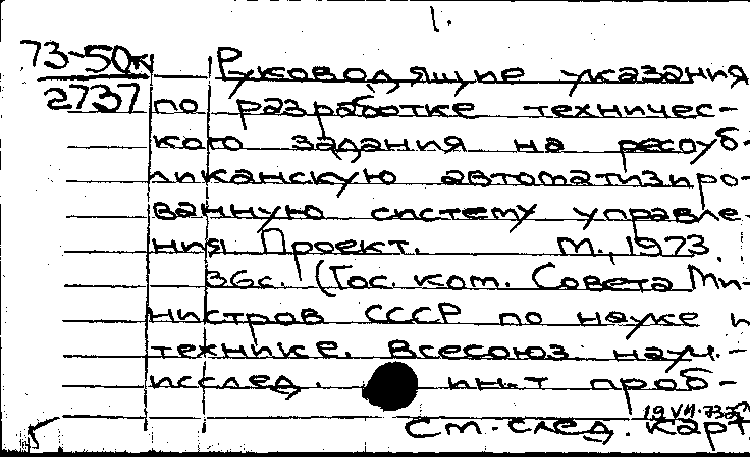 1.
73-50к
2737
Руководящие указания
по разработке техничес-
кого задания на ресуб-
ликанскую автоматизиро-
ванную систему управле-
ния Проект. М., 1973.
36с. (Гос. ком. Совета Ми-
нистров СССР по науке и
технике. Всесоюз. науч.-
исслед. ин-т проб-
19 VII
См. след. карт